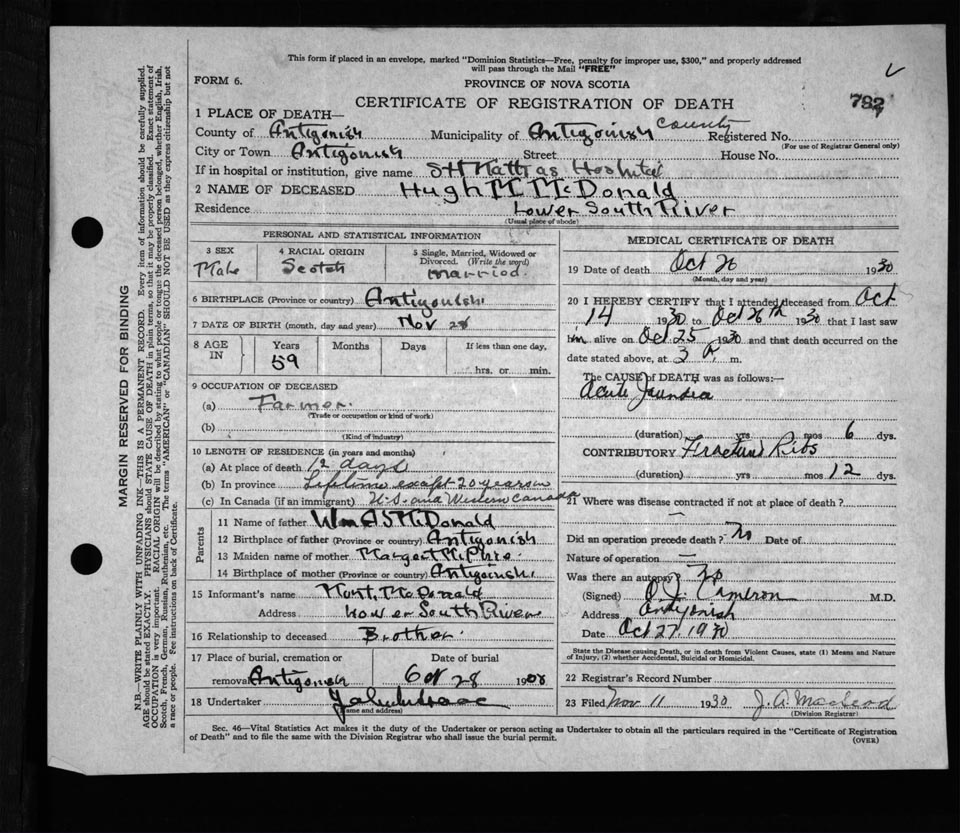 This form if placed in an envelope, marked "Dominion Statistics—Free, penalty for improper use, $300," and properly addressed
will pass through the Mail "FREE"
FORM 6.
PROVINCE OF NOVA SCOTIA
CERTIFICATE OF REGISTRATION OF DEATH
782
1 PLACE OF DEATH—
County of Antigonish Municipality of Antigonish County Registered No.
(For use of Registrar General only)
City or Town Antigonish Street House No.
If in hospital or institution, give name St Martras Hospital
2 NAME OF DECEASED Hugh M McDonald
Residence Lower South River
(Usual place of abode)
PERSONAL AND STATISTICAL INFORMATION
3 SEX Male
4 RACIAL ORIGIN Scotch
5 Single, Married, Widowed or Divorced. (Write the word) married.
6 BIRTHPLACE (Province or country) Antigonish
7 DATE OF BIRTH (month, day and year) Nov 28
8 AGE IN Years 59 Months Days If less than one day, hrs. or min.
9 OCCUPATION OF DECEASED
(a) Farmer.
(Trade or occupation or kind of work)
(b)
(Kind of industry)
10 LENGTH OF RESIDENCE (in years and months)
(a) At place of death 12 days
(b) In province Lifetime exept 20 years in
(c) In Canada (if an immigrant) U.S. and Western Canada
Parents
11 Name of father Wm A S McDonald
12 Birthplace of father (Province or country) Antigonish
13 Maiden name of mother Margert McPhre.
14 Birthplace of mother (Province or country) Antigoinshi
15 Informant's name McDonald
Address Lower South River
16 Relationship to deceased Brother.
17 Place of burial, cremation or removal Antigonish Date of burial Oct 28 19
18 Undertaker
(Name and address)
MEDICAL CERTIFICATE OF DEATH
19 Date of death Oct 26 1930
(Month, day and year)
20 I HEREBY CERTIFY that I attended deceased from Oct
14 1930 to Oct 26th 1930 that I last saw
him alive on Oct 25 1930 and that death occurred on the
date stated above, at 3 A m.
The CAUSE of DEATH was as follows:—
Acute Jaundea
(duration) yrs mos 6 dys.
CONTRIBUTORY Fractured Ribs
(duration) yrs mos 12 dys.
21 Where was disease contracted if not at place of death?
—
Did an operation precede death? No Date of
Nature of operation —
Was there an autopsy? No
(Signed) O. J. Cameron M.D.
Address Antigonish
Date Oct 27. 1930
State the Disease causing Death, or in death from Violent Causes, state (1) Means and Nature
of Injury, (2) whether Accidental, Suicidal or Homicidal.
22 Registrar's Record Number
23 Filed Nov 11 1930 J. A. Macleod
(Division Registrar)
Sec. 46—Vital Statistics Act makes it the duty of the Undertaker or person acting as Undertaker to obtain all the particulars required in the "Certificate of Registration
of Death" and to file the same with the Division Registrar who shall issue the burial permit.
(OVER)
MARGIN RESERVED FOR BINDING
N.B.—WRITE PLAINLY WITH UNFADING INK—THIS IS A PERMANENT RECORD. Every item of information should be carefully supplied.
AGE should be stated EXACTLY. PHYSICIANS should STATE CAUSE OF DEATH in plain terms, so that it may be properly classified. Exact statement of
OCCUPATION is very important. RACIAL ORIGIN will be described by stating to what people or tongue the deceased person belonged, whether English, Irish,
Scotch, French, German, Russian, Ruthenian, etc. The terms "AMERICAN" or "CANADIAN" SHOULD NOT BE USED as they express citizenship but not
a race or people. See instructions on back of Certificate.